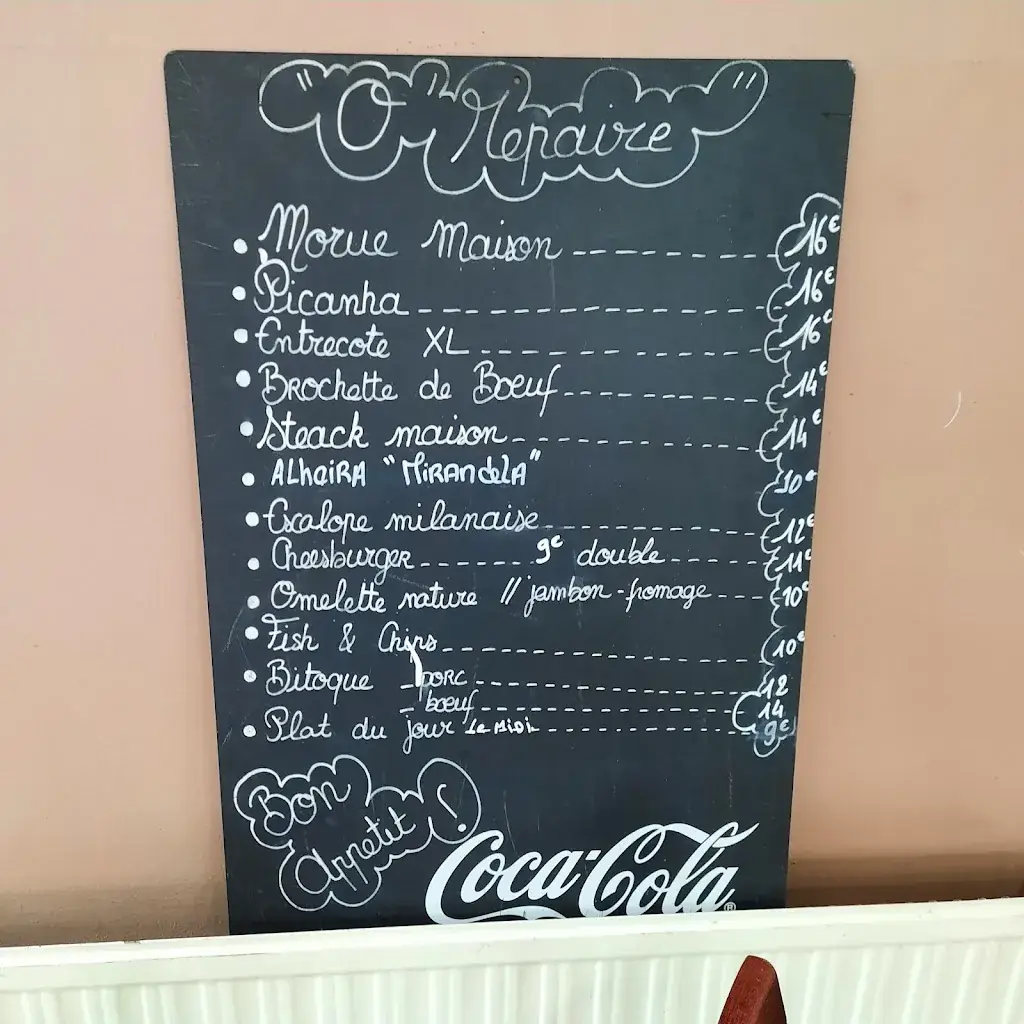 "O" Repaire
• Morue Maison --------- 16€
• Picanha --------------- 16€
• Entrecote XL ----------- 16€
• Brochette de Boeuf -------- 14€
• Steack maison ---------- 14€
• ALHEIRA "MIRANdelA" 10€
• Escalope milanaise --------- 12€
• Cheesburger ------ 9€ double ----- 11€
• Omelette nature // jambon-fromage --- 10€
• Fish & Chips -------------- 10€
• Bitoque - porc ------------ 12
- boeuf ------------ 14
• Plat du jour Le Midi ---------- 9€
Bon
Appetit !
Coca-Cola®